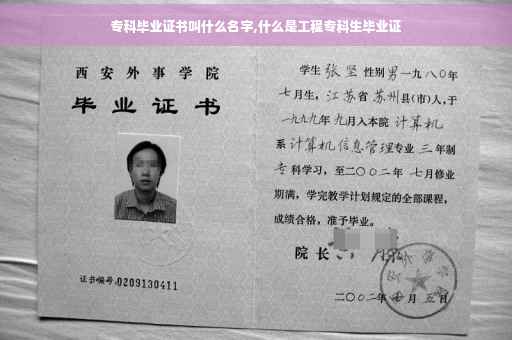 专科毕业证书叫什么名字,什么是工程专科生毕业证
西安外事学院
毕业证书
证书编号:0209130411
学生 张坚 性别 男 一九八〇年
七月生, 江苏省 苏州县(市)人,于
一九九九年 九月入本院 计算机
系 计算机信息管理专业 三 年制
专科学习,至二〇〇二年 七月修业
期满,学完教学计划规定的全部课程,
成绩合格,准予毕业。
院长
二〇〇二年 月五日